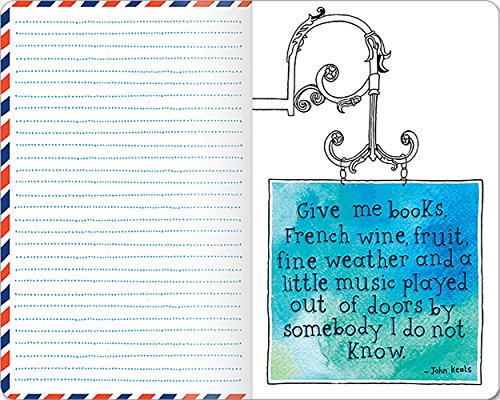 Give me books,
French wine, fruit,
fine weather and a
little music played
out of doors by
somebody I do not
Know.
- John Keats